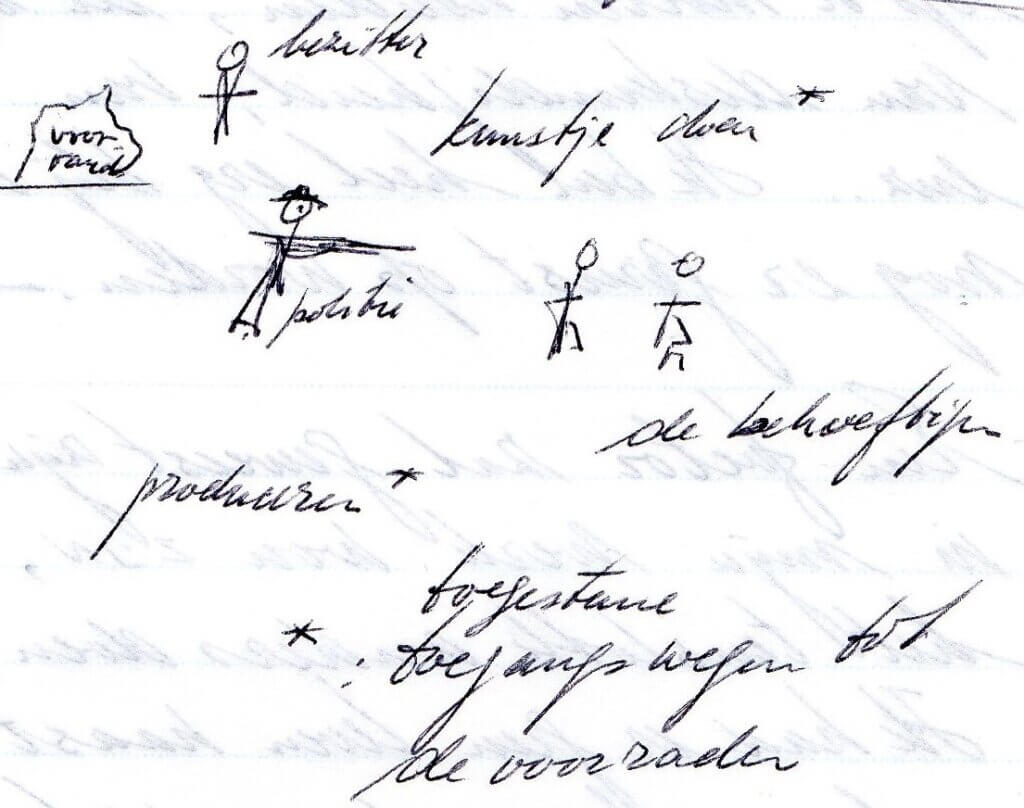 bezitter
kunstje doen *
voor
raad
politie
de behoeftigen
produceren *
toegestane
* : toegangswegen tot
de voorraden